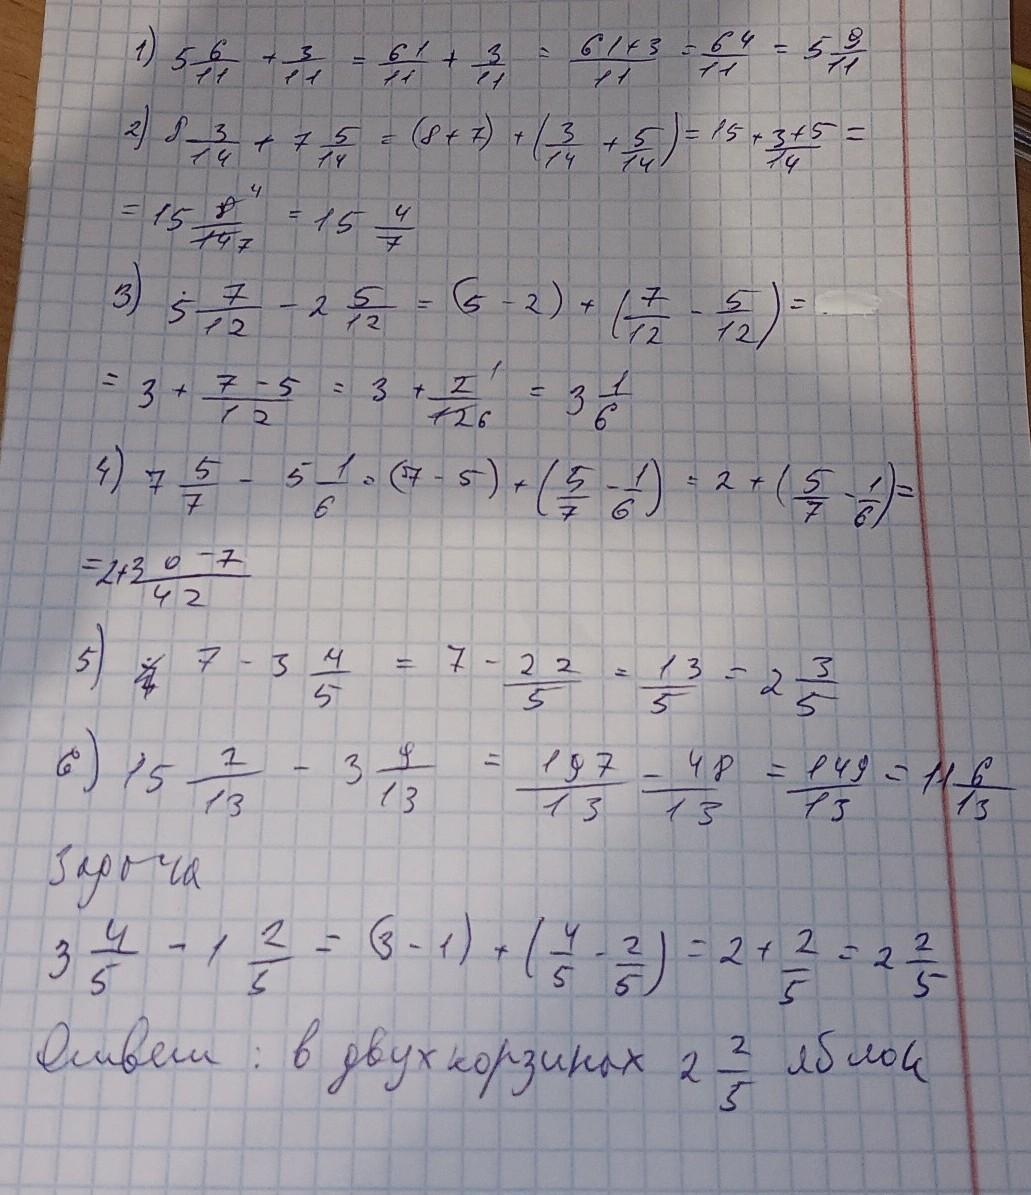 1) 5 6/11 + 3/11 = 61/11 + 3/11 = 61+3/11 = 64/11 = 5 9/11
2) 8 3/14 + 7 5/14 = (8+7) + (3/14 + 5/14) = 15 + 3+5/14 =
= 15 8/14 4 7 = 15 4/7
3) 5 7/12 - 2 5/12 = (5 - 2) + (7/12 - 5/12) =
= 3 + 7-5/12 = 3 + 2/12 1 6 = 3 1/6
4) 7 5/7 - 5 1/6 = (7 - 5) + (5/7 - 1/6) = 2 + (5/7 - 1/6) =
= 2+30-7/42
5) 7 - 3 4/5 = 7 - 22/5 = 13/5 = 2 3/5
6) 15 2/13 - 3 9/13 = 197/13 - 48/13 = 149/13 = 11 6/13
Задача
3 4/5 - 1 2/5 = (3 - 1) + (4/5 - 2/5) = 2 + 2/5 = 2 2/5
Ответ : в двух корзинах 2 2/5 яблок